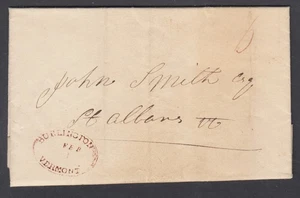 6
John Smith Esq
St Albans Vt
BURLINGTON
FEB
VERMONT.